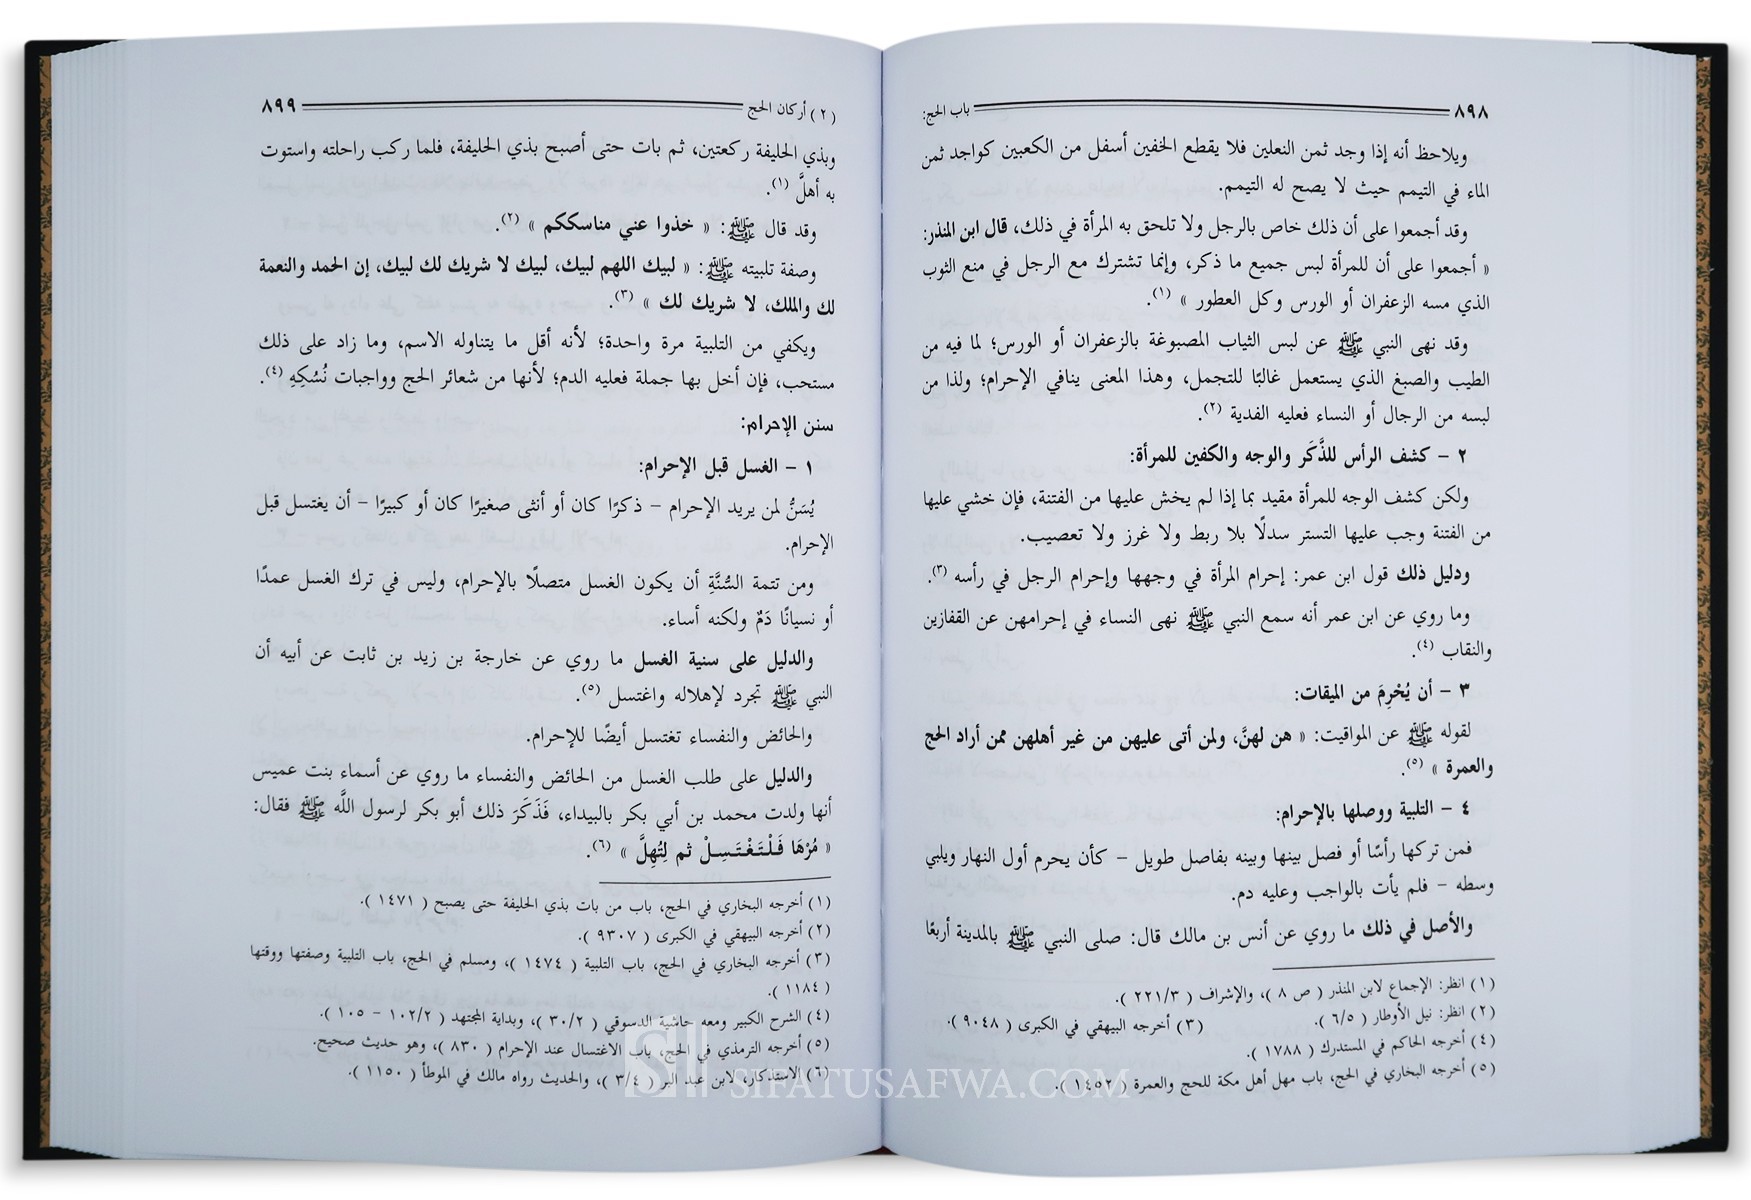 ٨٩٨ باب الحج:
ويلاحظ أنه إذا وجد ثمن النعلين فلا يقطع الخفين أسفل من الكعبين كواجد ثمن
الماء في التيمم حيث لا يصح له التيمم.
وقد أجمعوا على أن ذلك خاص بالرجل ولا تلحق به المرأة في ذلك، قال ابن المنذر:
« أجمعوا على أن للمرأة لبس جميع ما ذكر، وإنما تشترك مع الرجل في منع الثوب
الذي مسه الزعفران أو الورس وكل العطور » (١).
وقد نهى النبي ﷺ عن لبس الثياب المصبوغة بالزعفران أو الورس؛ لما فيه من
الطيب والصبغ الذي يستعمل غالبًا للتجمل، وهذا المعنى ينافي الإحرام؛ ولذا من
لبسه من الرجال أو النساء فعليه الفدية (٢).
٢ - كشف الرأس للذَّكَر والوجه والكفين للمرأة:
ولكن كشف الوجه للمرأة مقيد بما إذا لم يخش عليها من الفتنة، فإن خشي عليها
من الفتنة وجب عليها التستر سدلًا بلا ربط ولا غرز ولا تعصيب.
ودليل ذلك قول ابن عمر: إحرام المرأة في وجهها وإحرام الرجل في رأسه (٣).
وما روي عن ابن عمر أنه سمع النبي ﷺ نهى النساء في إحرامهن عن القفازين
والنقاب (٤).
٣ - أن يُحْرِمَ من الميقات:
لقوله ﷺ عن المواقيت: « هن لهنَّ، ولمن أتى عليهن من غير أهلهن ممن أراد الحج
والعمرة » (٥).
٤ - التلبية ووصلها بالإحرام:
فمن تركها رأسًا أو فصل بينها وبينه بفاصل طويل - كأن يحرم أول النهار ويلبي
وسطه - فلم يأت بالواجب وعليه دم.
والأصل في ذلك ما روي عن أنس بن مالك قال: صلى النبي ﷺ بالمدينة أربعًا
(١) انظر: الإجماع لابن المنذر ( ص ٨ )، والإشراف ( ٢٢١/٣ ).
(٢) انظر: نيل الأوطار ( ٦/٥ ). (٣) أخرجه البيهقي في الكبرى ( ٩٠٤٨ ).
(٤) أخرجه الحاكم في المستدرك ( ١٧٨٨ ).
(٥) أخرجه البخاري في الحج، باب مهل أهل مكة للحج والعمرة ( ١٤٥٢ ).
(٢) أركان الحج ٨٩٩
وبذي الحليفة ركعتين، ثم بات حتى أصبح بذي الحليفة، فلما ركب راحلته واستوت
به أهلَّ (١).
وقد قال ﷺ: « خذوا عني مناسككم » (٢).
وصفة تلبيته ﷺ: « لبيك اللهم لبيك، لبيك لا شريك لك لبيك، إن الحمد والنعمة
لك والملك، لا شريك لك » (٣).
ويكفي من التلبية مرة واحدة؛ لأنه أقل ما يتناوله الاسم، وما زاد على ذلك
مستحب، فإن أخل بها جملة فعليه الدم؛ لأنها من شعائر الحج وواجبات نُسُكِهِ (٤).
سنن الإحرام:
١ - الغسل قبل الإحرام:
يُسَنُّ لمن يريد الإحرام - ذكرًا كان أو أنثى صغيرًا كان أو كبيرًا - أن يغتسل قبل
الإحرام.
ومن تتمة السُّنَّةِ أن يكون الغسل متصلًا بالإحرام، وليس في ترك الغسل عمدًا
أو نسيانًا دَمٌ ولكنه أساء.
والدليل على سنية الغسل ما روي عن خارجة بن زيد بن ثابت عن أبيه أن
النبي ﷺ تجرد لإهلاله واغتسل (٥).
والحائض والنفساء تغتسل أيضًا للإحرام.
والدليل على طلب الغسل من الحائض والنفساء ما روي عن أسماء بنت عميس
أنها ولدت محمد بن أبي بكر بالبيداء، فَذَكَرَ ذلك أبو بكر لرسول اللَّه ﷺ فقال:
« مُرْهَا فَلْتَغْتَسِلْ ثم لِتُهِلَّ » (٦).
(١) أخرجه البخاري في الحج، باب من بات بذي الحليفة حتى يصبح ( ١٤٧١ ).
(٢) أخرجه البيهقي في الكبرى ( ٩٣٠٧ ).
(٣) أخرجه البخاري في الحج، باب التلبية ( ١٤٧٤ )، ومسلم في الحج، باب التلبية وصفتها ووقتها
( ١١٨٤ ).
(٤) الشرح الكبير ومعه حاشية الدسوقي ( ٣٠/٢ )، وبداية المجتهد ( ١٠٢/٢ - ١٠٥ ).
(٥) أخرجه الترمذي في الحج، باب الاغتسال عند الإحرام ( ٨٣٠ )، وهو حديث صحيح.
(٦) الاستذكار، لابن عبد البر ( ٣/٤ )، والحديث رواه مالك في الموطأ ( ١١٥٠ ).
SIFATUSAFWA.COM